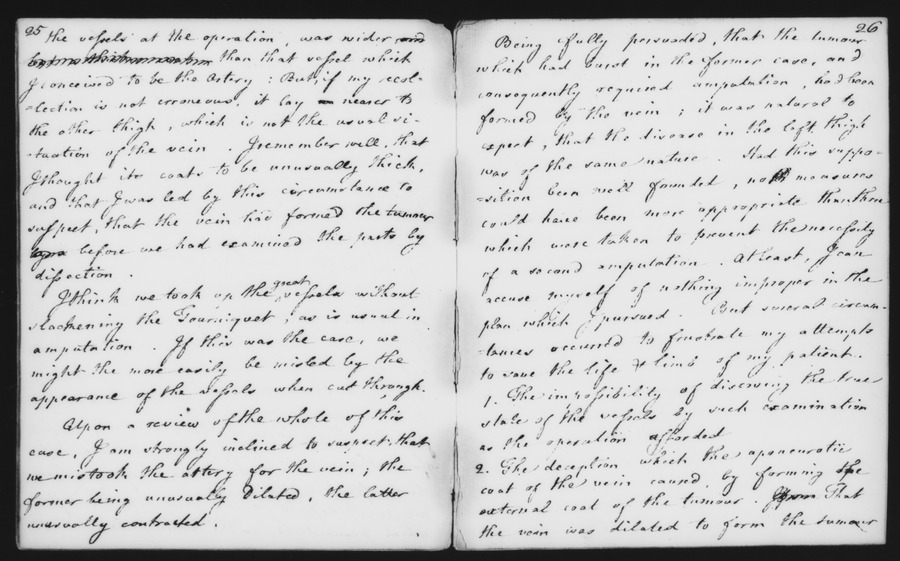 25
the vessels at the operation, was wider and
than that vessel which
I conceived to be the artery : But, if my recol-
-lection is not erroneous, it lay nearer to
the other thigh, which is not the usual si-
-tuation of the vein. I remember well, that
I thought its coats to be unusually thick,
and that I was led by this circumstance to
suspect, that the vein had formed the tumour
before we had examined the parts by
dissection.
I think we took up the great vessels without
slackening the Tourniquet, as is usual in
amputation. If this was the case, we
might the more easily be misled by the
appearance of the vessels when cut through.
Upon a review of the whole of this
case, I am strongly inclined to suspect, that
we mistook the artery for the vein; the
former being unusually dilated, the latter
unusually contracted.
26
Being fully persuaded, that the tumour
which had burst in the former case, and
consequently required amputation, had been
formed by the vein; it was natural to
expect, that the disease in the left thigh
was of the same nature. Had this suppo-
-sition been well founded, no measures
could have been more appropriate than those
which were taken to prevent the necessity
of a second amputation. At least, I can
accuse myself of nothing improper in the
plan which I pursued. But several circum-
-tances occurred to frustrate my attempts
to save the life & limb of my patient.
1. The impossibility of discovering the true
state of the vessels by such examination
as the operation afforded
2. The deception which the aponeurotic
coat of the vein caused, by forming the
external coat of the tumour. That
the vein was dilated to form the tumour